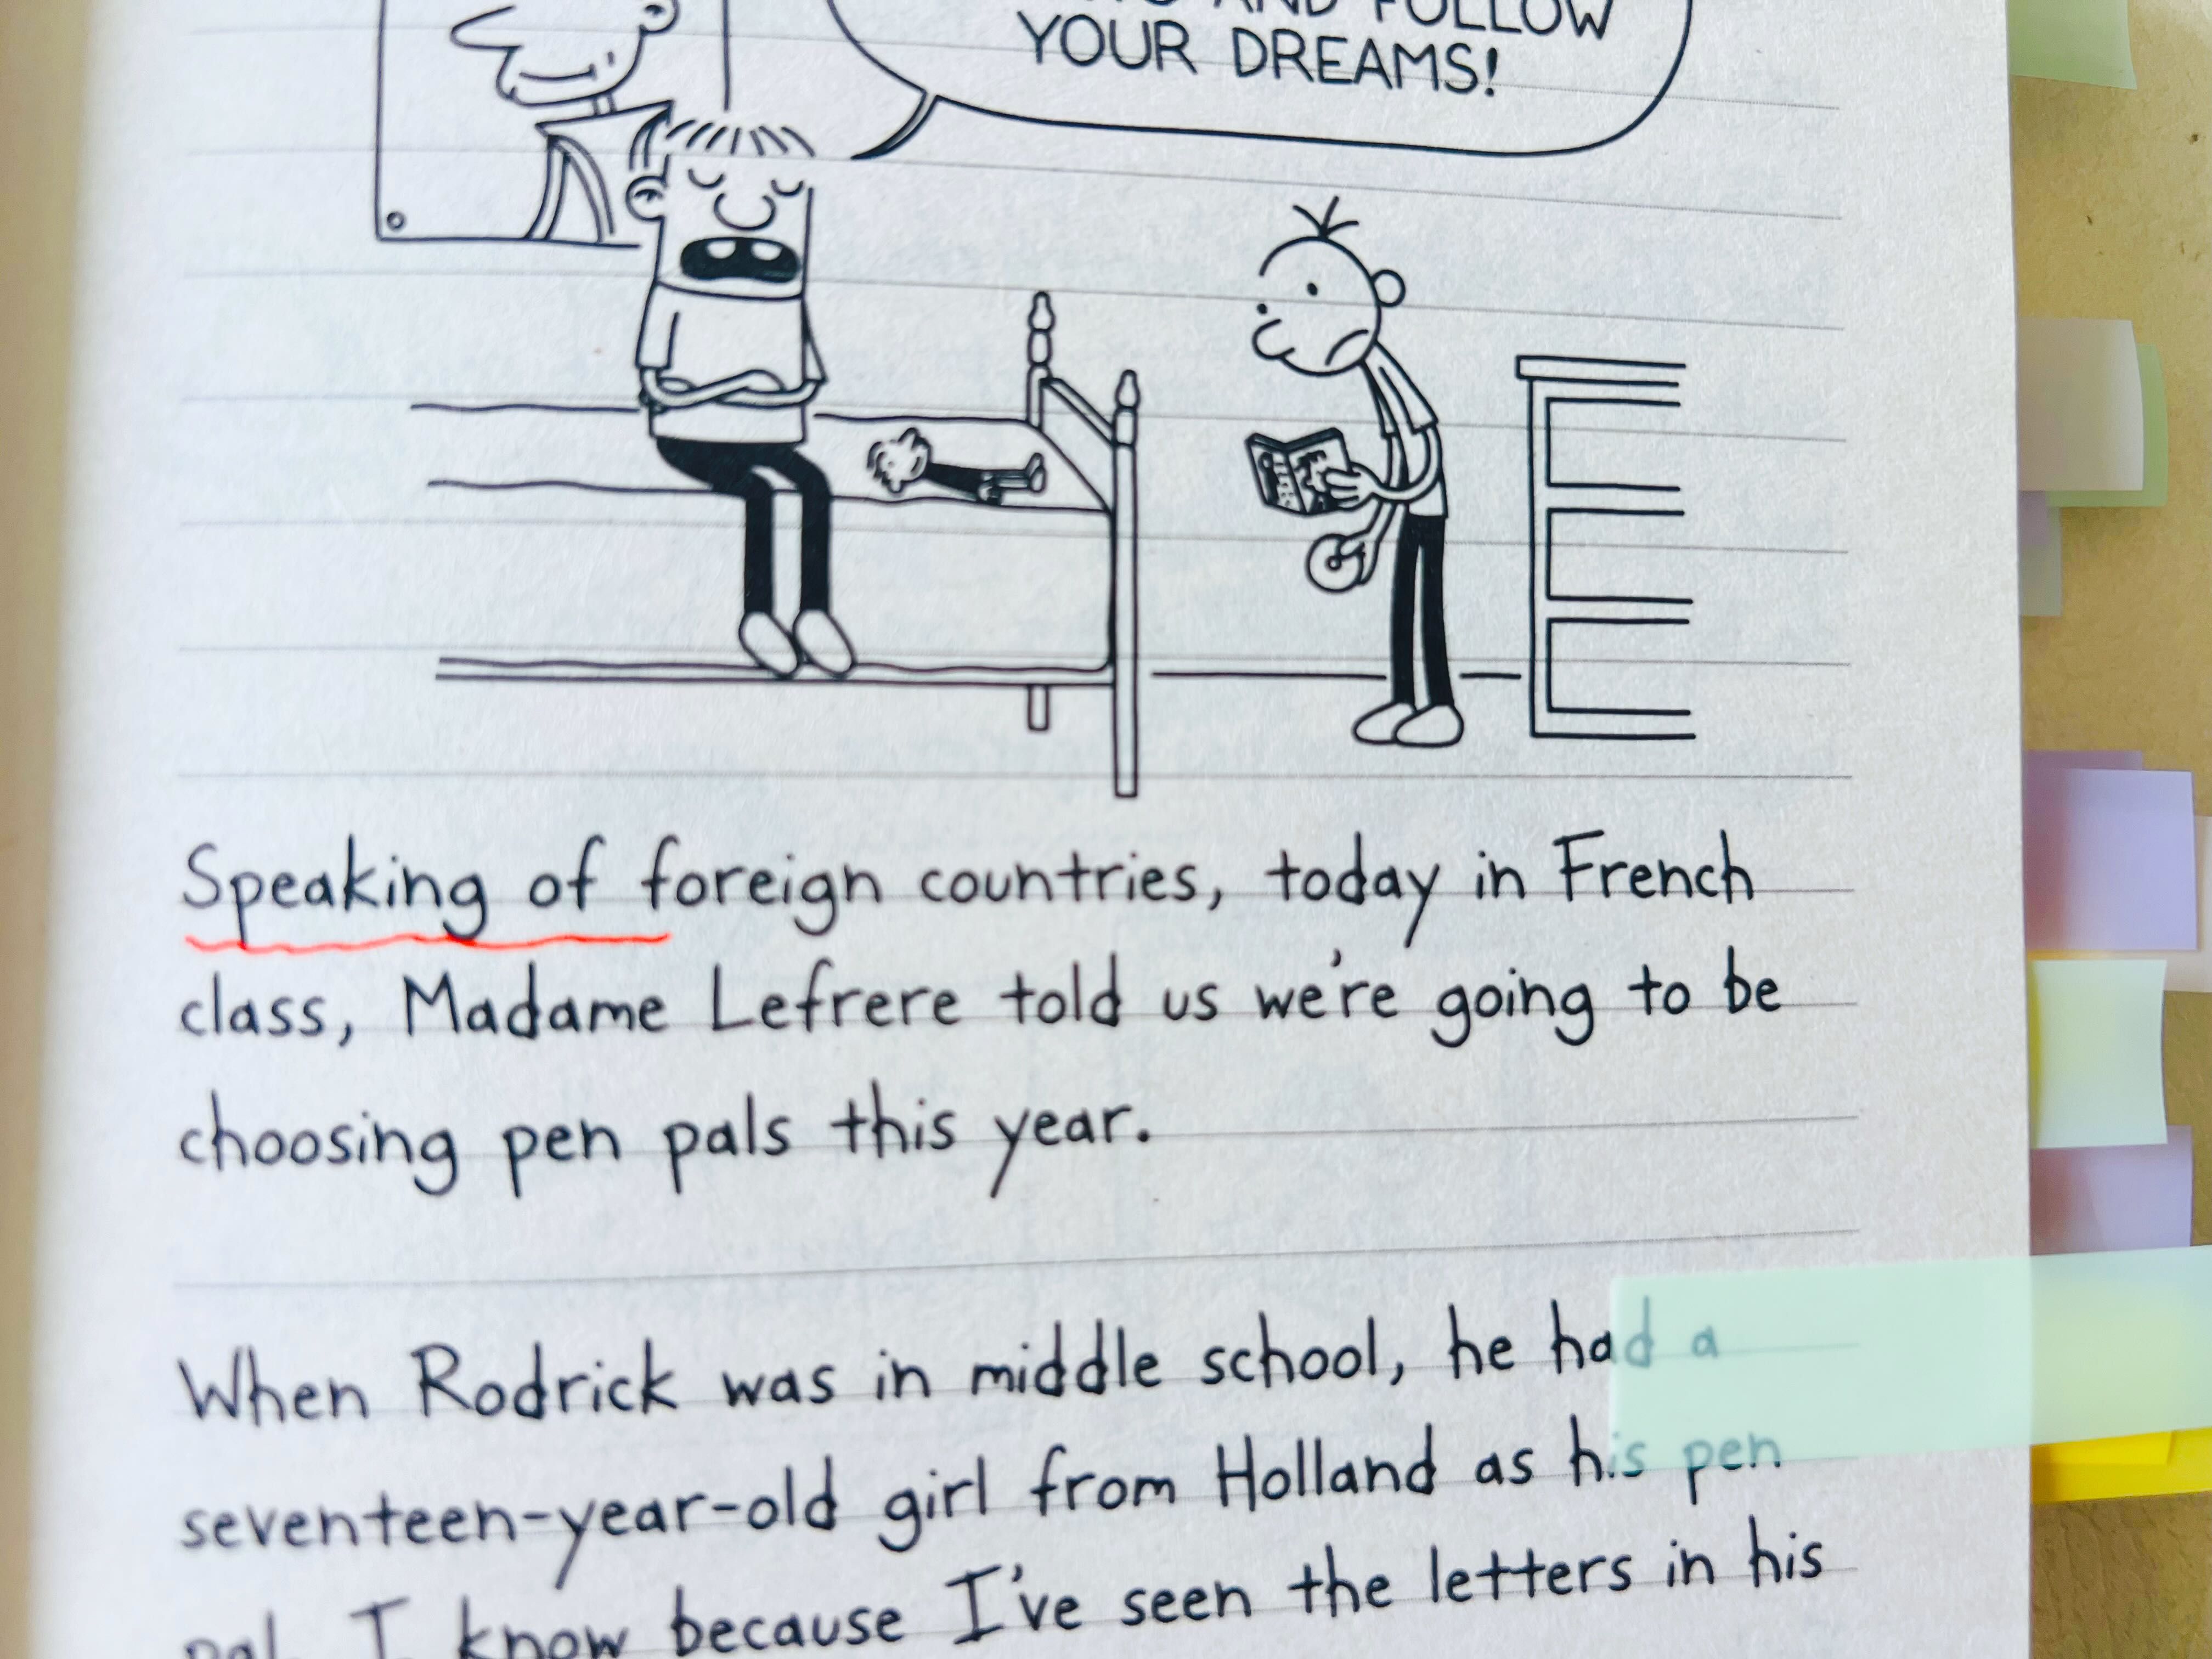 AND FOLLOW
YOUR DREAMS!
Speaking of foreign countries, today in French
class, Madame Lefrere told us we're going to be
choosing pen pals this year.
When Rodrick was in middle school, he had a
seventeen-year-old girl from Holland as his pen
pal. I know because I've seen the letters in his